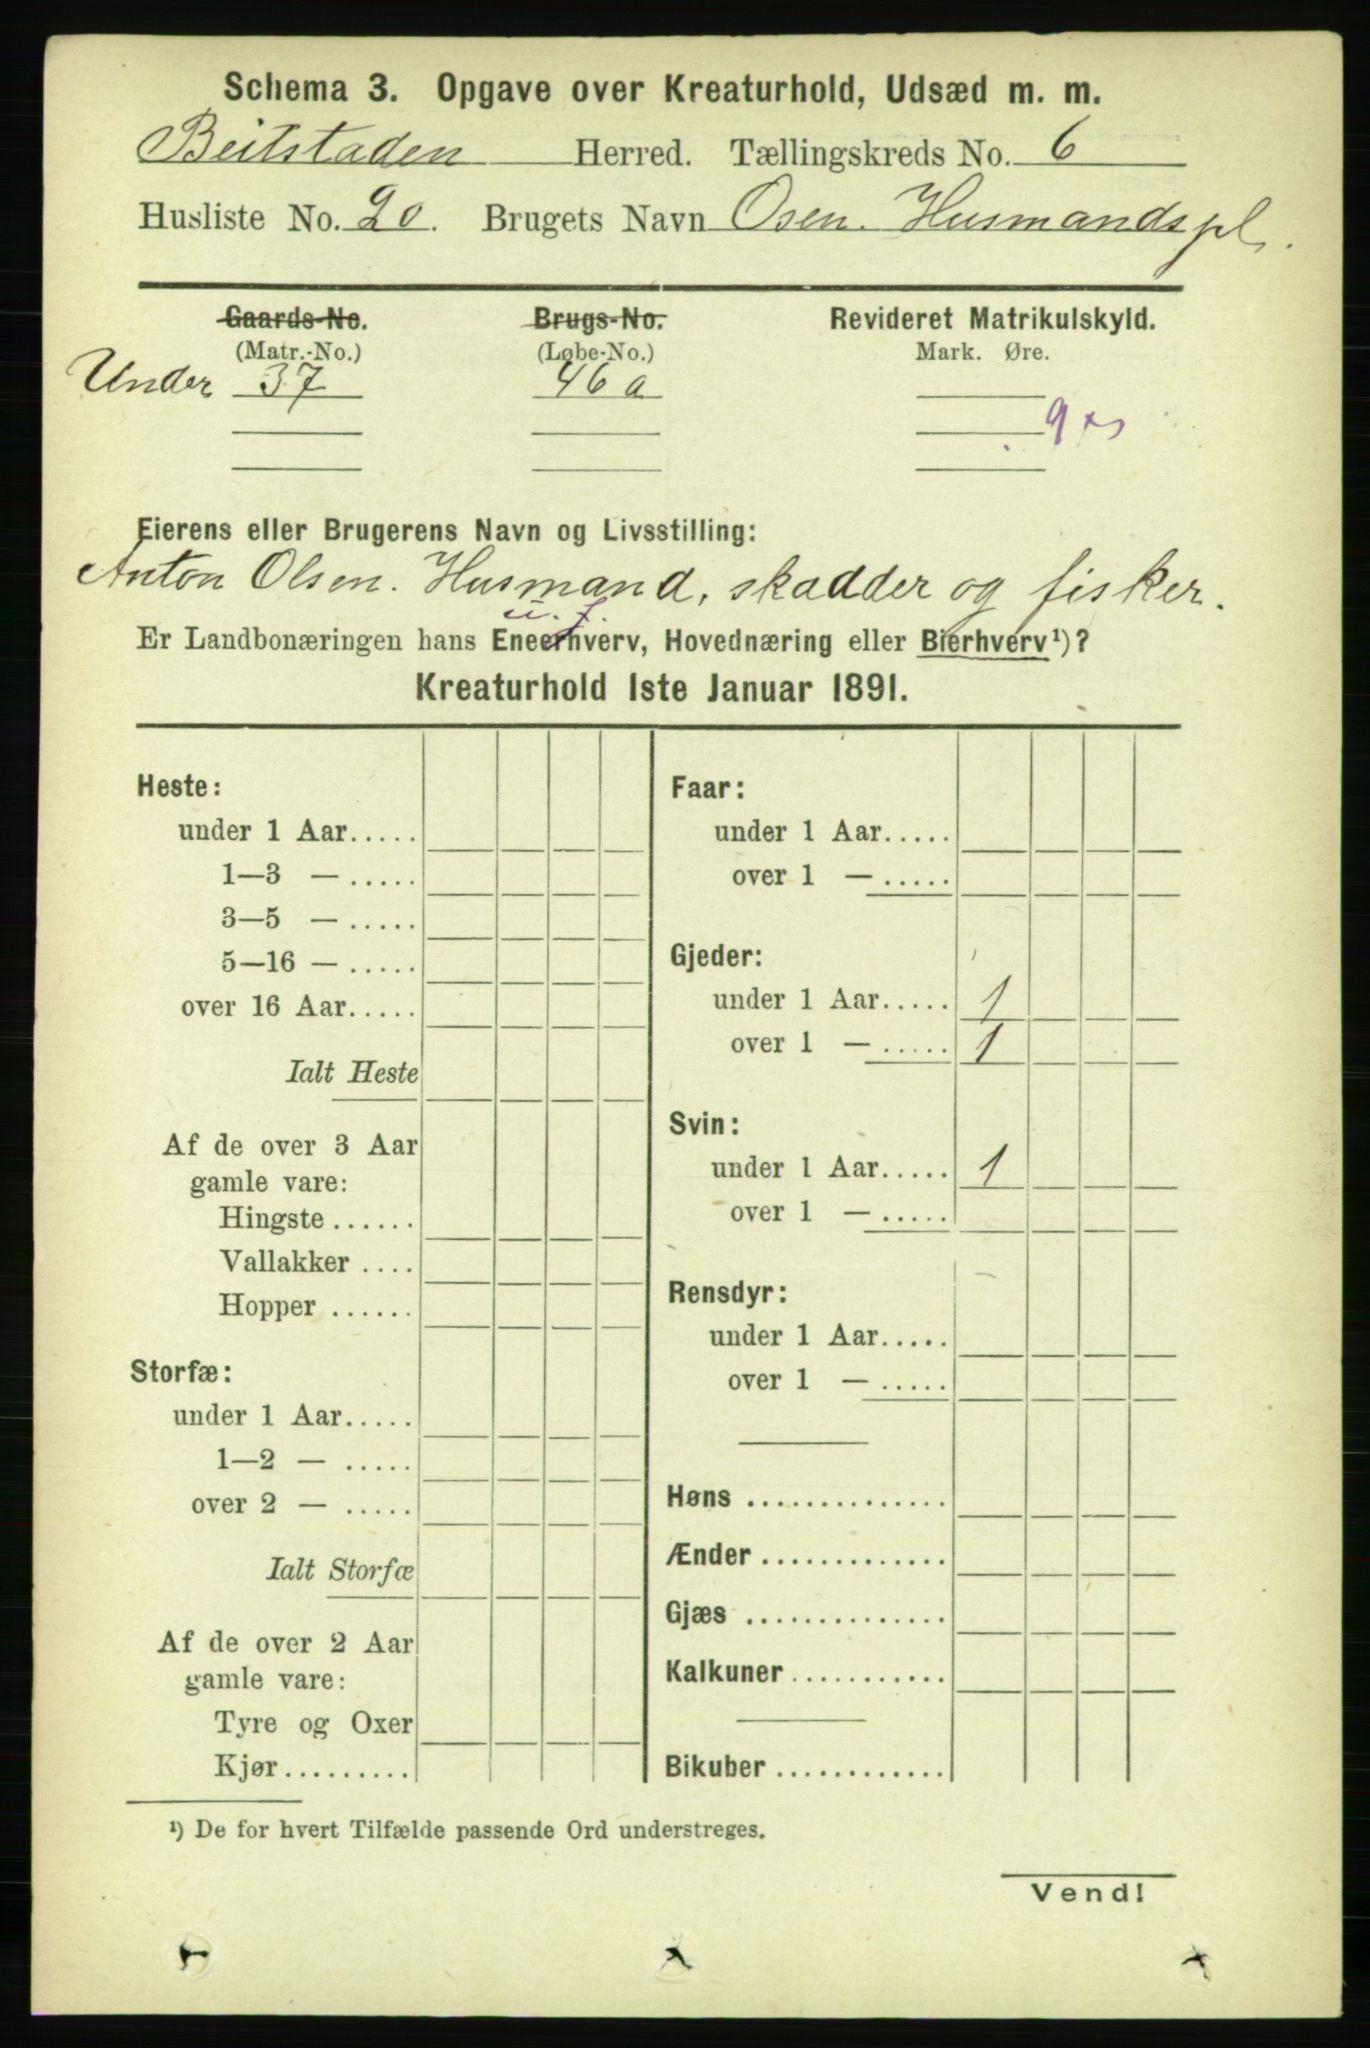 Schema 3. Opgave over Kreaturhold, Udsæd m. m.
Beitstaden Herred. Tællingskreds No. 6
Husliste No. 20. Brugets Navn Osen. Husmandspl.
Gaards-No. Brugs-No. Revideret Matrikulskyld.
(Matr.-No.) (Løbe-No.) Mark. Øre.
Under 37 46 a
Eierens eller Brugerens Navn og Livsstilling:
Anton Olsen. Husmand, skadder og fisker.
u. J.
Er Landbonæringen hans Eneerhverv, Hovednæring eller Bierhverv¹)?
Kreaturhold 1ste Januar 1891.
Heste:
under 1 Aar.....
1—3 — .....
3—5 — .....
5—16 — .....
over 16 Aar.....
Ialt Heste
Af de over 3 Aar
gamle vare:
Hingste ......
Vallakker ....
Hopper ......
Storfæ:
under 1 Aar.....
1—2 — .....
over 2 — .....
Ialt Storfæ
Af de over 2 Aar
gamle vare:
Tyre og Oxer
Kjør.........
Faar:
under 1 Aar.....
over 1 — .....
Gjeder:
under 1 Aar..... 1
over 1 — ..... 1
Svin:
under 1 Aar..... 1
over 1 — .....
Rensdyr:
under 1 Aar.....
over 1 — .....
Høns ..............
Ænder .............
Gjæs ..............
Kalkuner...........
Bikuber ............
¹) De for hvert Tilfælde passende Ord understreges.
Vend!